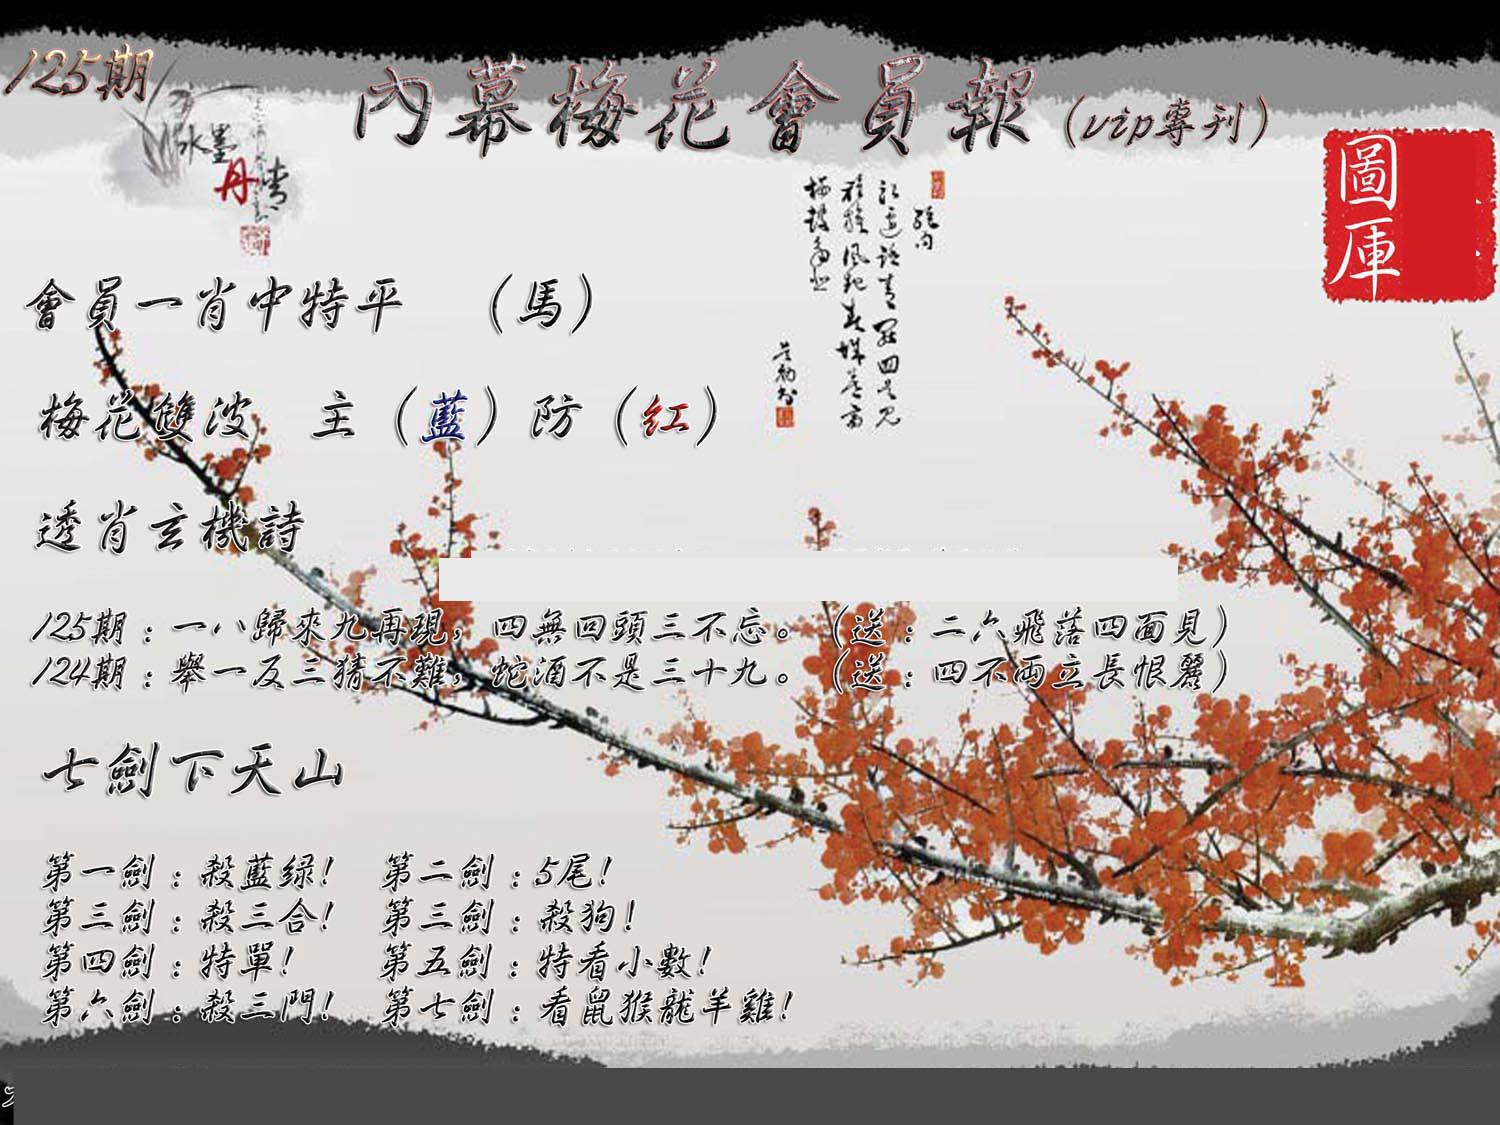 125期
內幕梅花會員報（vip專刊）
水墨
丹青
圖庫
會員一肖中特平　（馬）
梅花雙波　主（藍）防（紅）
透肖玄機詩
125期：一八歸來九再現，四無四頭三不忘。（送：二六飛落四面見）
124期：舉一反三猜不難，蛇酒不是三十九。（送：四不兩立長恨麗）
七劍下天山
第一劍：殺藍绿！　第二劍：5尾！
第三劍：殺三合！　第三劍：殺狗！
第四劍：特單！　第五劍：特看小數！
第六劍：殺三門！　第七劍：看鼠猴龍羊雞！